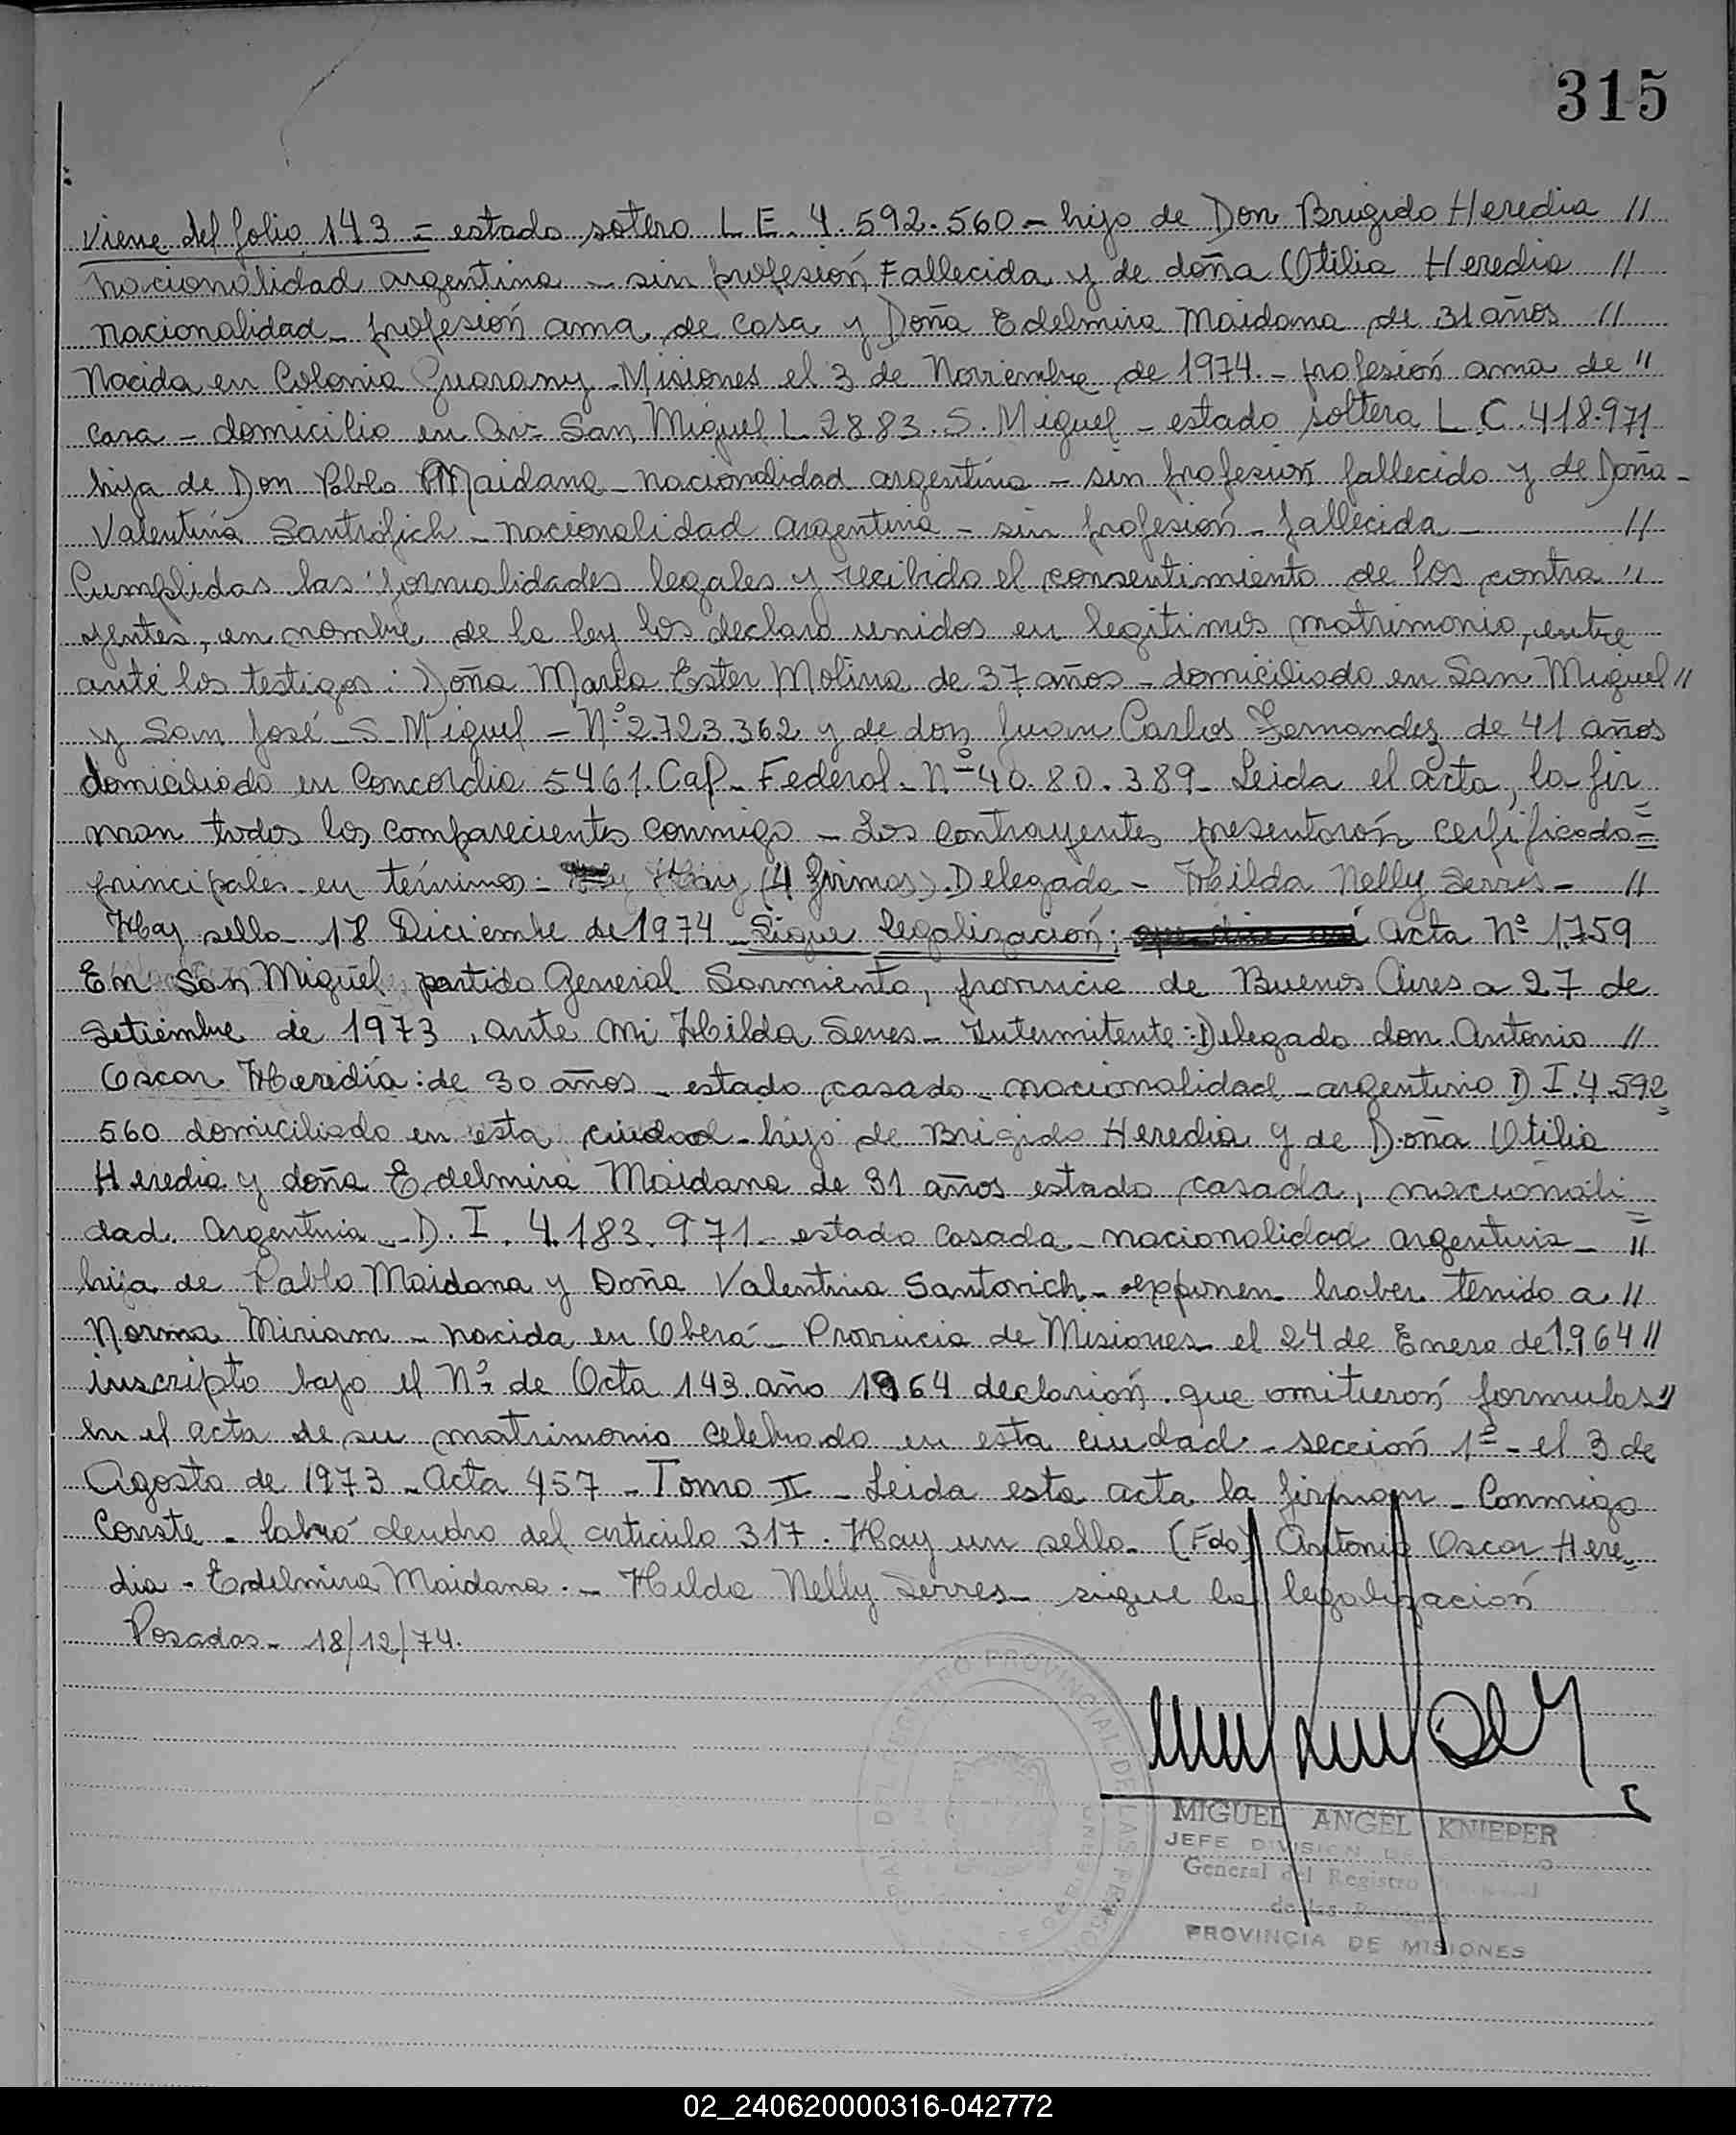 315
Viene del folio 143 = estado sotero L E. 4.592.560 - hijo de Don Brugido Heredia //
nacionalidad argentina - sin profesión Fallecida y de doña Otilia Heredia //
nacionalidad - profesión ama de casa y Doña Edelmira Maidana de 31 años //
Nacida en Colonia Guarany - Misiones el 3 de Noviembre de 1974. - profesión ama de "
casa - domicilio en Av- San Miguel L 2883. S. Miguel - estado soltera L. C. 418.971
hija de Don Pablo Maidana - nacionalidad argentina - sin profesión fallecido y de Doña -
Valentina Santrofich - nacionalidad argentina - sin profesión - fallecida - //
Cumplidas las formalidades legales y recibido el consentimiento de los contra "
yentes, en nombre de la ley los declaro unidos en legitimos matrimonio, entre
ante los testigos: Doña Marta Ester Molina de 37 años - domiciliado en San Miguel //
y San José - S. Miguel - Nº 2.723.362 y de don Juan Carlos Fernandez de 41 años
domiciliado en Concordia 5461. Cap. Federal - Nº 40.80.389 - Leida el acta, la fir
man todos los comparecientes conmigo - Los contrayentes presentarón cerfificado =
principales en términos - Hay (4 firmas). Delegada - Hilda Nelly Serres - //
Hay sello - 18 Diciembre de 1974 - Sigue legalización; Acta Nº 1.759
En San Miguel partido General Sarmiento, provincia de Buenos Aires a 27 de
Setiembre de 1973, ante mi Hilda Serres - Intermitente: Delegado don Antonio //
Oscar Heredia: de 30 años - estado casado - nacionalidad - argentino D I. 4.592
560 domiciliado en esta ciudad - hijo de Brigido Heredia y de Doña Otilia
Heredia y doña Edelmira Maidana de 31 años estado casada, nacionali
dad. Argentina - D. I. 4.183.971 - estado casada - nacionalidad argentina - //
hija de Pablo Maidana y Doña Valentina Santovich - exponen haber tenido a //
Norma Miriam - nacida en Oberá - Provincia de Misiones el 24 de Enero de 1964 //
inscripto bajo el Nº de Acta 143 año 1964 declarión que omitierón formulas //
en el acta de su matrimonio celebrado en esta ciudad - sección 1ª - el 3 de
Agosto de 1973 - Acta 457 - Tomo II - Leida esta acta la firman - Conmigo
Conste - labró dendro del articulo 317. Hay un sello - (Fdo) Antonio Oscar Here
dia - Edelmira Maidana. - Hilda Nelly Serres - sigue la legalización
Posadas - 18/12/74.
MIGUEL ANGEL KNIEPER
JEFE DIVISION
General del Registro
de las
PROVINCIA DE MISIONES
02_240620000316-042772